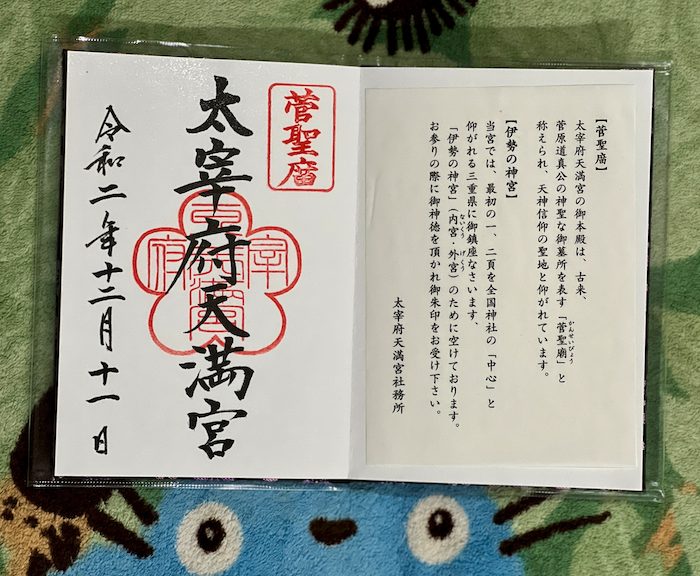 【菅聖廟】
太宰府天満宮の御本殿は、古来、
菅原道真公の神聖な御墓所を表す「菅聖廟」と
かんせいびょう
称えられ、天神信仰の聖地と仰がれています。
【伊勢の神宮】
当宮では、最初の一、二頁を全国神社の「中心」と
仰がれる三重県に御鎮座なさいます、
「伊勢の神宮」（内宮・外宮）のために空けております。
ないくう げくう
お参りの際に御神徳を頂かれ御朱印をお受け下さい。
太宰府天満宮社務所
菅聖廟
太宰府天満宮
令和二年十二月十一日